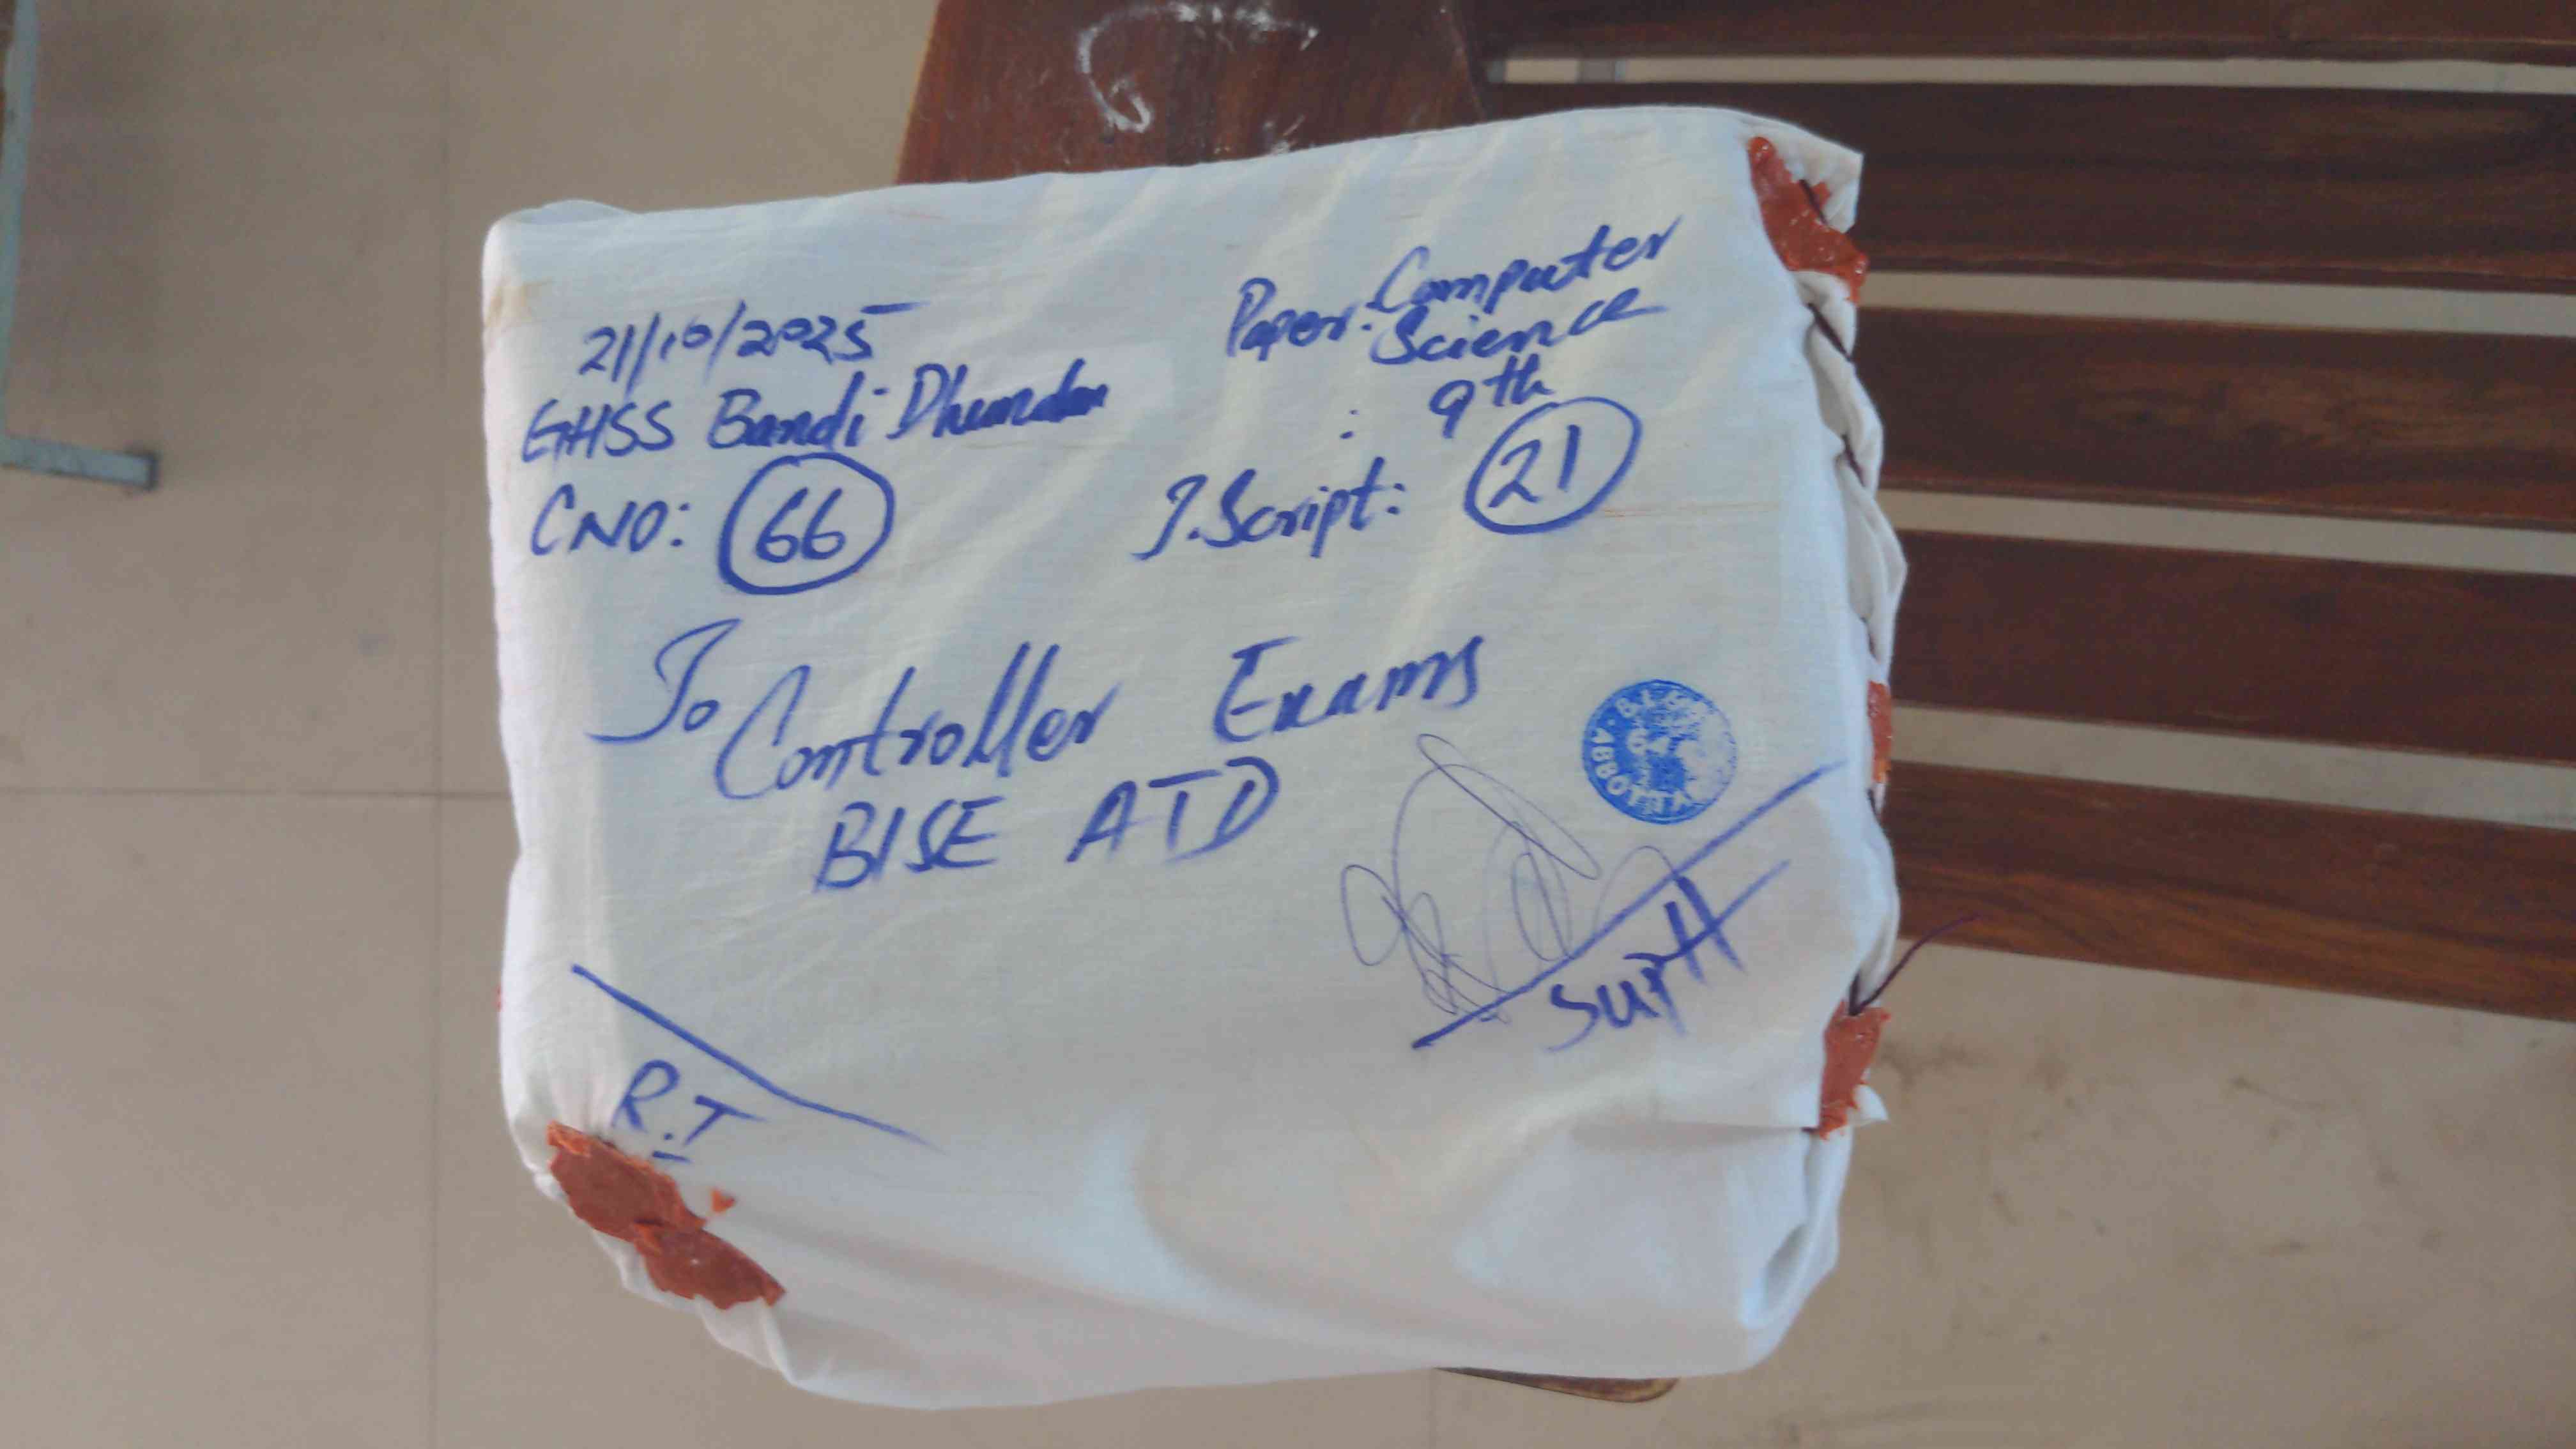 21/10/2025
GHSS Bandi Dhundan
CNO: 66
Paper: Computer
Science
: 9th
T.Script: 21
To
Controller Exams
BISE ATD
Suptt
R.T